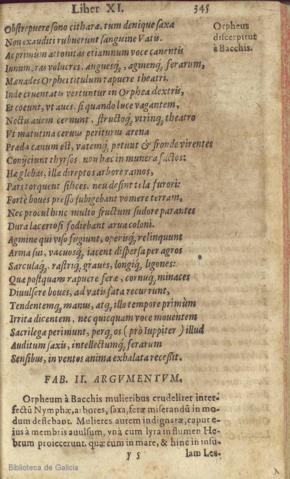 Liber XI. 345
Obstrepuere sono citharæ. tum denique saxa
Non exauditi rubuerunt sanguine Vatis.
Ac primum attonitas etiamnum voce canentis
Innumeras volucres, anguesq;, agmenq; ferarum,
Mænades Orphei titulum rapuere theatri.
Inde cruentatis vertuntur in Orphea dextris,
Et coeunt, vt aues, si quando luce vagantem,
Noctis auem cernunt, structoq; vtrinq; theatro
Vt matutina ceruus periturus arena
Præda canum est, vatemq; petunt & fronde virentes
Conijciunt thyrsos non hæc in munera factos:
Hæ glebas, illæ direptos arbore ramos,
Pars torquent silices. neu desint tela furori:
Fortè boues presso subigebant vomere terram,
Nec procul hinc multo fructum sudore parantes
Dura lacertosi fodiebant arua coloni.
Agmine qui viso fugiunt, operisq; relinquunt
Arma sui, vacuosq; iacent dispersa per agros
Sarculaq;, rastriq; graues, longiq; ligones:
Quæ postquam rapuere feræ, cornuq; minaces
Diuulsere boues, ad vatis fata recurrunt,
Tendentemq; manus, atq; illo tempore primùm
Irrita dicentem, nec quicquam voce mouentem
Sacrilegæ perimunt, perq; os (prò Iuppiter) illud
Auditum saxis, intellectumq; ferarum
Sensibus, in ventos anima exhalata recessit.
Orpheus
discerpitur
à Bacchis.
FAB. II. ARGVMENTVM.
Orpheum à Bacchis mulieribus crudeliter inter-
fectū Nymphæ, arbores, saxa, feræ miserandū in mo-
dum deflebant. Mulieres autem indignatæ, caput e-
ius à membris auulsum, vnà cum lyra in flumen He-
brum proiecerunt. quæ cum in mare, & hinc in insu-
Y 5 lam Les-
Biblioteca de Galicia